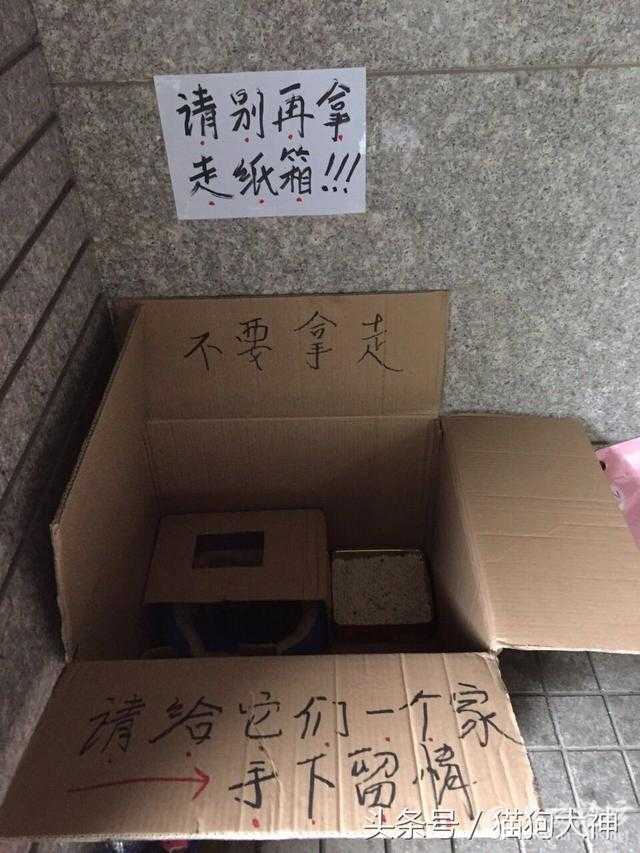 请别再拿
走纸箱!!!
不要拿走
请给它们一个家
手下留情
头条号 / 猫狗大神